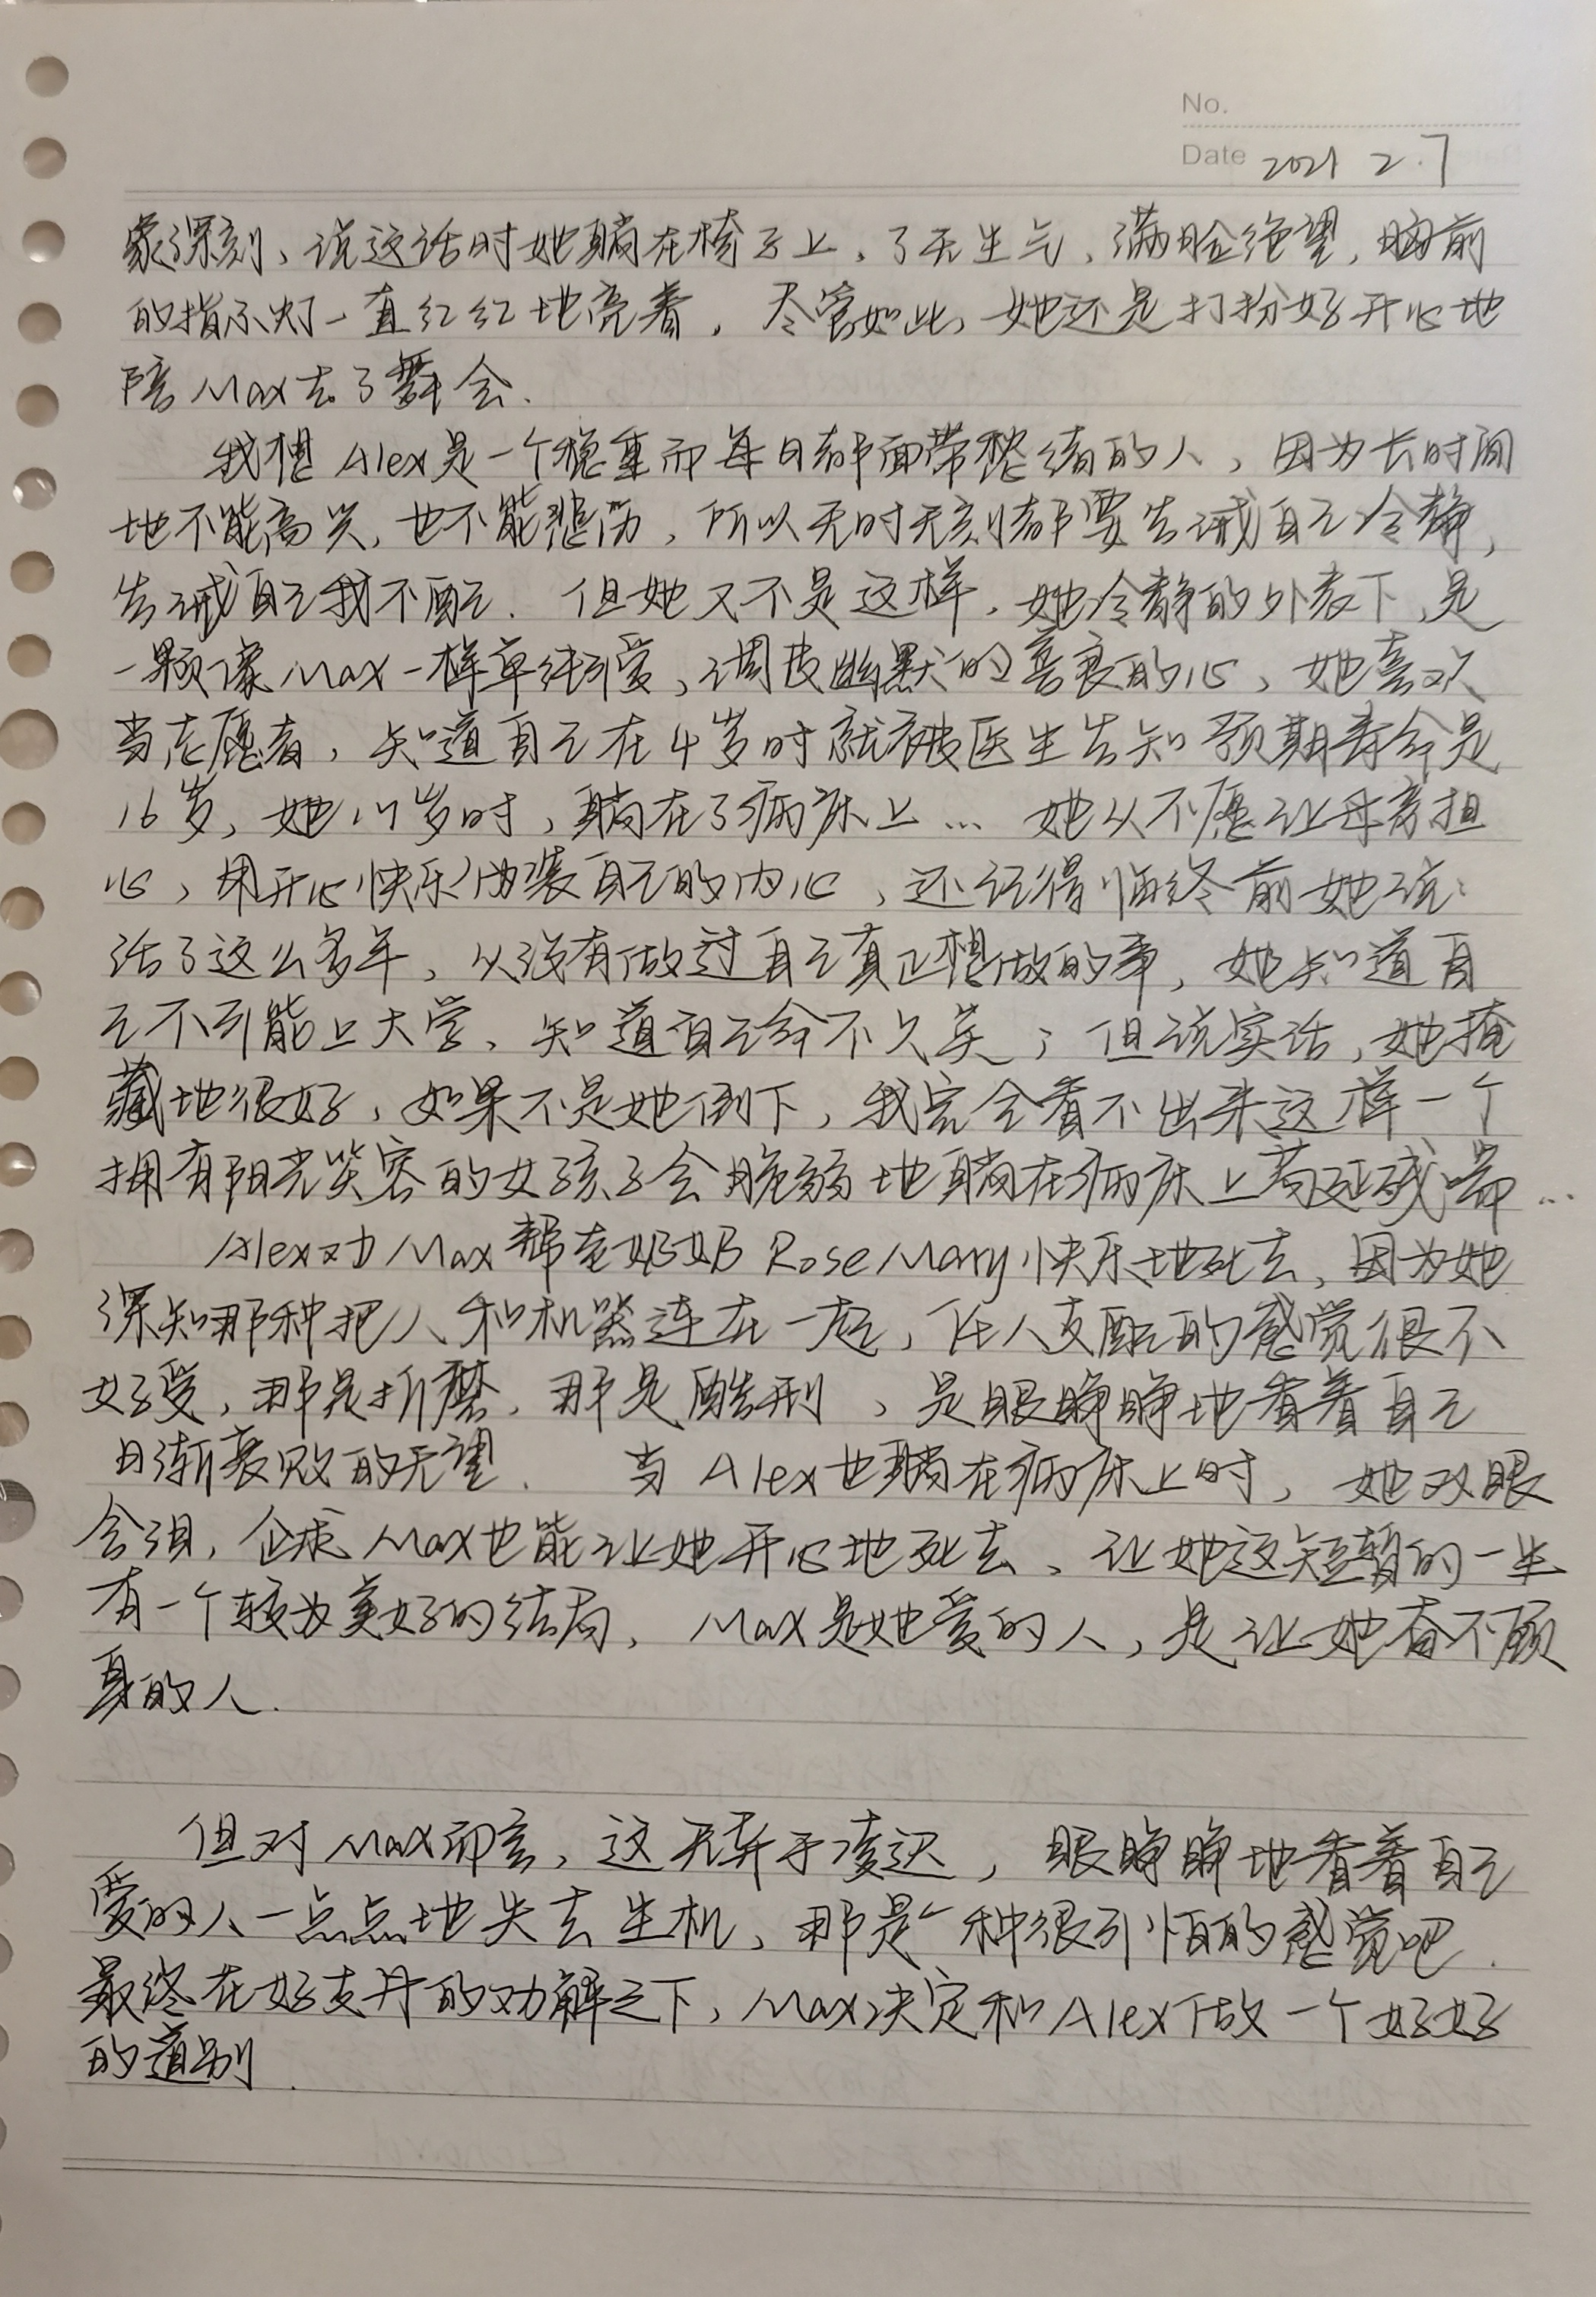 No.
Date 2021 2.7
象深刻、说这话时她躺在椅子上，了无生气，满脸绝望，胸前
的指示灯一直红红地亮着，尽管如此，她还是打扮好开心地
陪Max去了舞会.
我想Alex是一个稳重而每日都面带愁绪的人，因为长时间
地不能高兴，也不能悲伤，所以无时无刻都要告诫自己冷静，
告诫自己我不配. 但她又不是这样，她冷静的外表下，是
一颗像Max一样单纯可爱、调皮幽默的善良的心，她喜欢
当志愿者，知道自己在4岁时就被医生告知预期寿命是
16岁，她17岁时，躺在了病床上… 她从不愿让母亲担
心，用开心快乐伪装自己的内心，还记得临终前她说：
活了这么多年，从没有做过自己真正想做的事，她知道自
己不可能上大学、知道自己命不久矣；但说实话，她掩
藏地很好，如果不是她倒下，我完全看不出来这样一个
拥有阳光笑容的女孩子会脆弱地躺在病床上苟延残喘…
Alex劝Max帮走奶奶RoseMary快乐地死去，因为她
深知那种把人和机器连在一起，任人支配的感觉很不
好受，那是折磨，那是酷刑，是眼睁睁地看着自己
日渐衰败的无望. 当Alex也躺在病床上时，她双眼
含泪，企求Max也能让她开心地死去、让她这短暂的一生
有一个较为美好的结局，Max是她爱的人，是让她奋不顾
身的人.
但对Max而言，这无异于凌迟，眼睁睁地看着自己
爱的人一点点地失去生机，那是一种很可怕的感觉吧.
最终在好友丹的劝解之下，Max决定和Alex做一个好好
的道别.